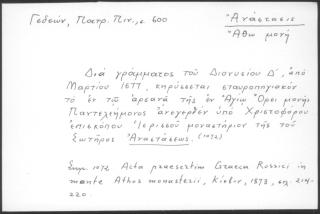 Γεδεών, Πατρ. Πιν., σ. 600
Ἀνάστασις
Ἄθω μονή
Διὰ γράμματος τοῦ Διονυσίου Δ´, ἀπὸ
Μαρτίου 1677, κηρύσσεται σταυροπηγιακὸν
τὸ ἐν τῷ ἀρσανᾷ τῆς ἐν Ἁγίῳ Ὄρει μονῆς
Παντελεήμονος ἀνεγερθὲν ὑπὸ Χριστοφόρου
ἐπισκόπου Ἱερισσοῦ μοναστήριον τῆς τοῦ
Σωτῆρος Ἀναστάσεως. (1072)
Σημ. 1072 Acta praesertim Graeca Rossici in
monte Athos monasterii, Kiobiæ, 1873, σελ. 214-
220.